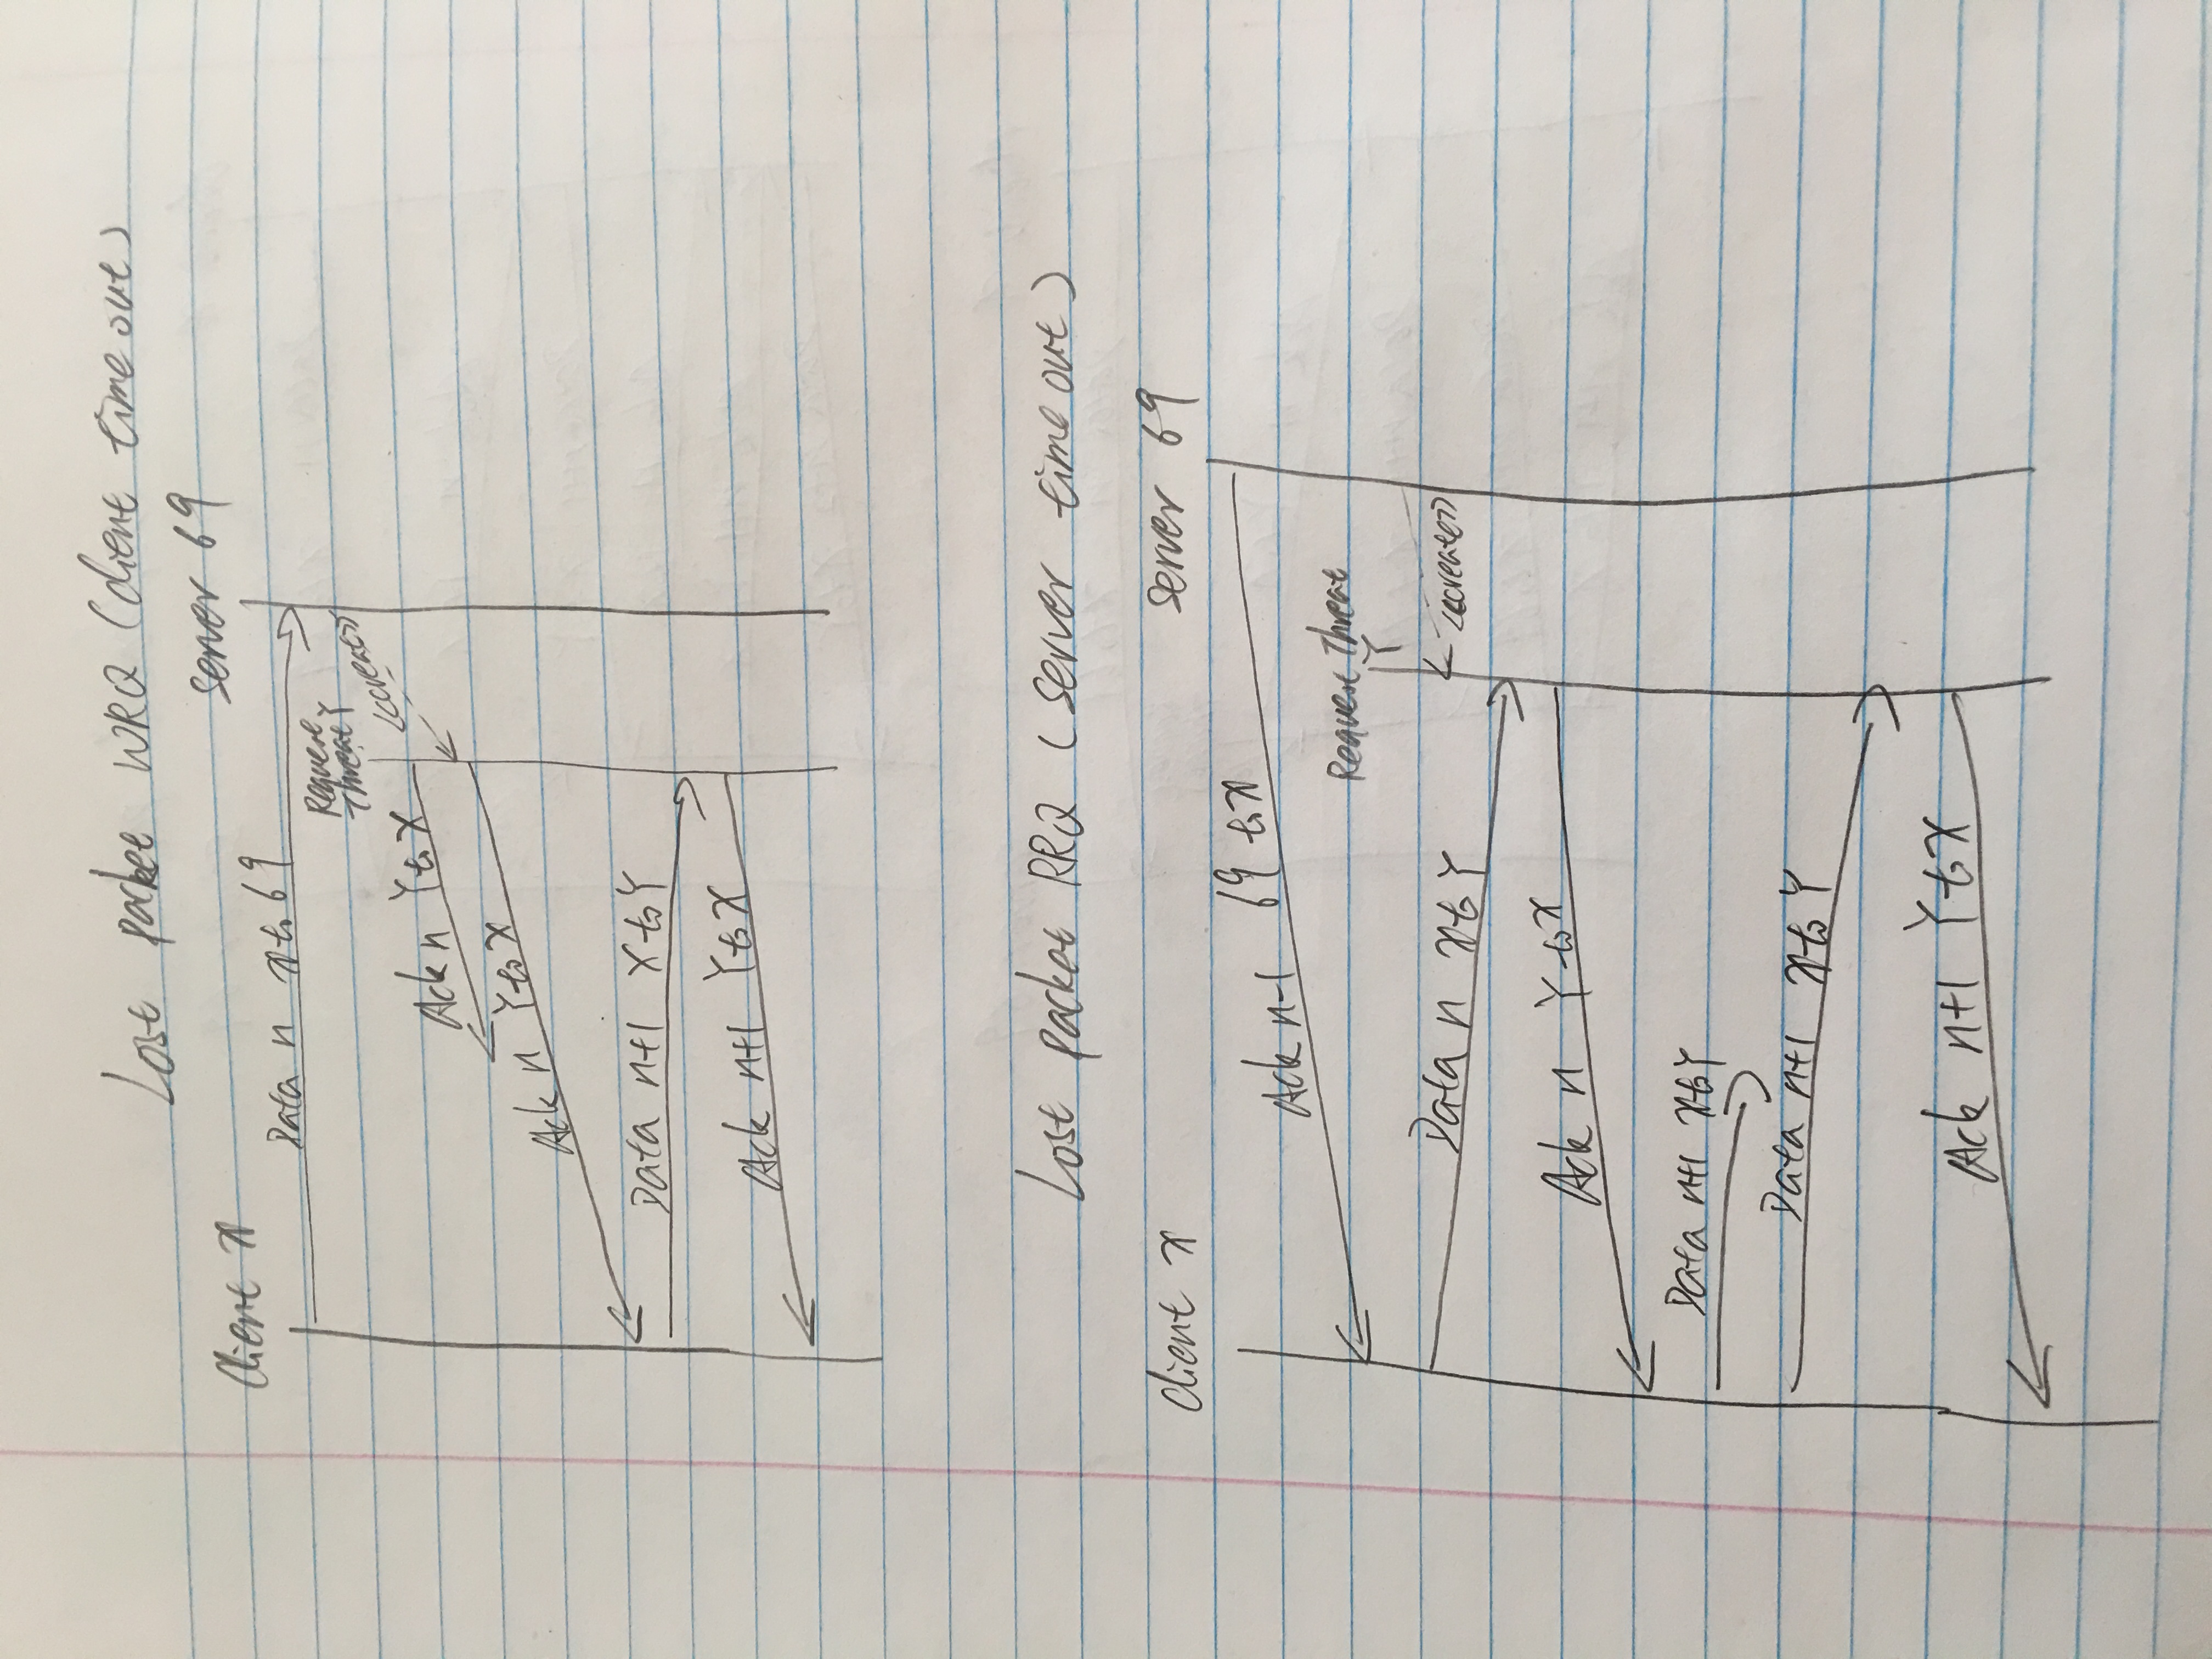 Lost packet WRQ (client time out)
server 69
Client x
Data n x to 69
Request
Threat Y
<<create>>
Ack n Y to X
Ack n Y to X
Data n+1 X to Y
Ack n+1 Y to X
Lost packet RRQ (server time out)
client x
server 69
Ack n-1 69 to x
Request Threat
Y
Data n x to Y
<<create>>
Ack n Y to x
Data n+1 x to Y
Data n+1 x to Y
Ack n+1 Y to X